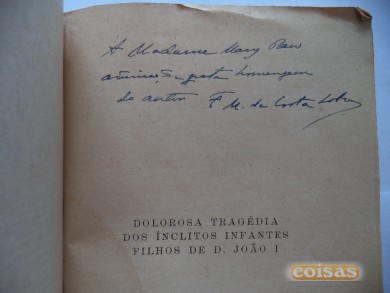 A Madame Mary
homenagem
do autor F M. da Costa Lobo
DOLOROSA TRAGÉDIA
DOS ÍNCLITOS INFANTES
FILHOS DE D. JOÃO I
coisas